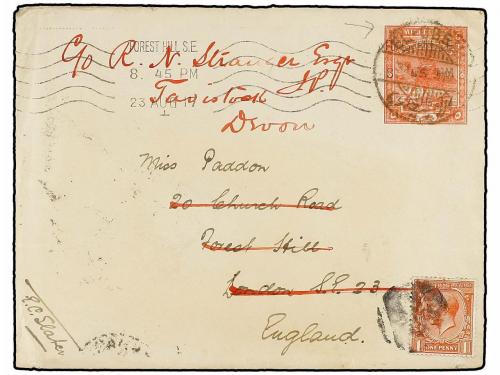 FOREST HILL S.E.
8. 45 PM
23 AUG 17
C/o R. N. Stranger Esqr
J.P.
Tavistock
Devon
Miss Paddon
20 Church Road
Forest Hill
London S.E. 23
England.
E.C. Slater
ONE PENNY